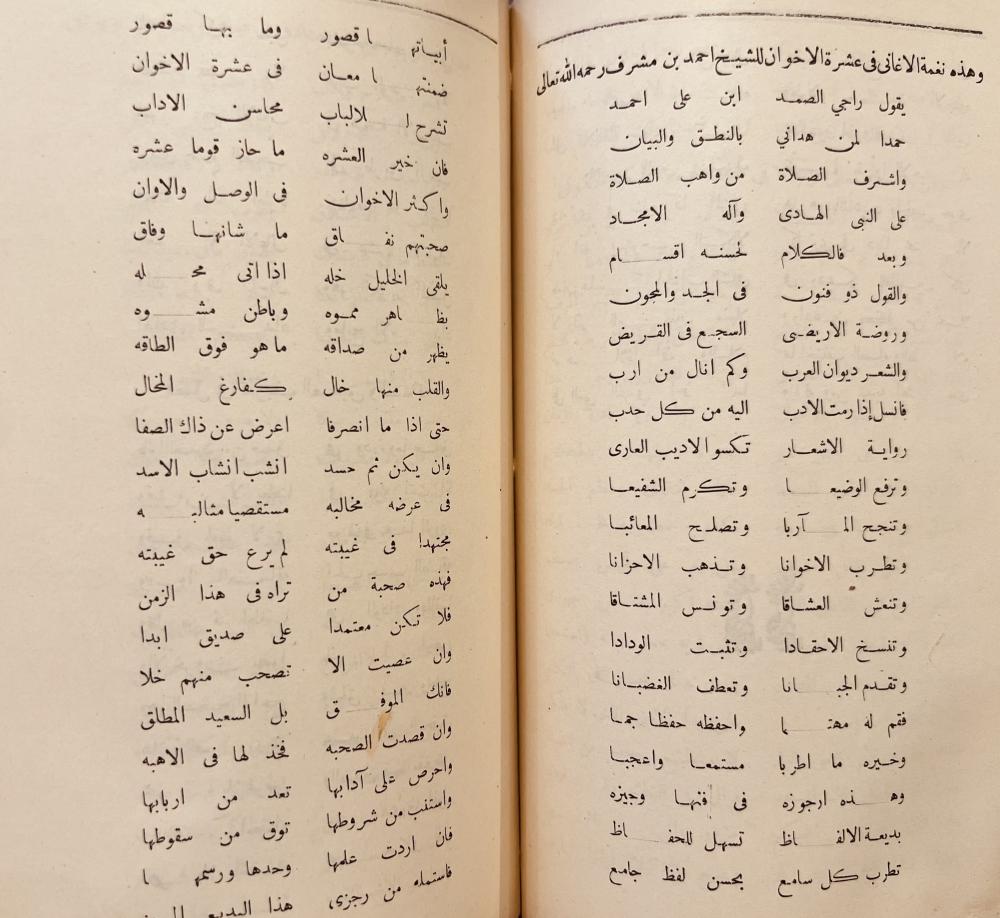 وهذه نغمة الاغانى فى عشرة الاخوان للشيخ احمد بن مشرف رحمه الله تعالى
يقول راجي الصمد ابن على احمد
حمدا لمن هداني بالنطق والبيان
واشرف الصلاة من واهب الصلاة
على النبى الهادى وآله الامجاد
وبعد فالكلام لحسنه اقسام
والقول ذو فنون فى الجد والمجون
وروضة الاريضى السجع فى القريض
والشعر ديوان العرب وكم انال من ارب
فانسل إذا رمت الادب اليه من كل حدب
رواية الاشعار تكسو الاديب العارى
وترفع الوضيعا وتكرم الشفيعا
وتنجح المآربا وتصلح المعائبا
وتطرب الاخوانا وتذهب الاحزانا
وتنعش العشاقا وتونس المشتاقا
وتنسخ الاحقادا وتثبت الودادا
وتقدم الجبانا وتعطف الغضبانا
فقم له مهتما واحفظه حفظا جما
وخيره ما اطربا مستمعا واعجبا
وهذه ارجوزه فى فنها وجيزه
بديعة الالفاظ تسهل للحفاظ
تطرب كل سامع بحسن لفظ جامع
أبياتها قصور وما بها قصور
ضمنتها معان فى عشرة الاخوان
تشرح لالباب محاسن الاداب
فان خير العشره ما حاز قوما عشره
واكثر الاخوان فى الوصل والاوان
صحبتهم نفاق ما شانها وفاق
يلقى الخليل خله اذا اتى محله
بظاهر مموه وباطن مشوه
يظهر من صداقه ما هو فوق الطاقه
والقلب منها خال كفارغ المخال
حتى اذا ما انصرفا اعرض عن ذاك الصفا
وان يكن ثم حسد انشب انشاب الاسد
فى عرضه مخالبه مستقصيا مثالبه
مجتهدا فى غيبته لم يرع حق غيبته
فهذه صحبة من تراه فى هذا الزمن
فلا تكن معتمدا على صديق ابدا
وان عصيت الا تصحب منهم خلا
فانك الموفق بل السعيد المطلق
وان قصدت الصحبه فخذ لها فى الاهبه
واحرص على آدابها تعد من اربابها
واستنب من شروطها توق من سقوطها
فان اردت علمها وحدها ورسمها
فاستمله من رجزى هذا البديع